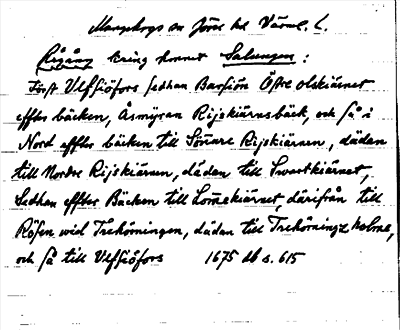 Mangskogs sn Jösse hd Värml. L.
Rågång kring hemmet Salungen :
Först Ulfsiöfors sedhan Barsiön Östre olskiärnet
effter bäcken, Åsmyran Rijskiärnsbäck, och så i
Nord effter bäcken till Sönare Rijskiärnen, dädan
till Nordre Rijskiärnen, dädan till Swartkiärnet,
Sedhan effter Bäcken till Lomekiärnet, därifrån till
Rösen wid Trekörningen, dädan till Trekörningz holme,
och så till Ulfsiöfors 1675 db s. 615